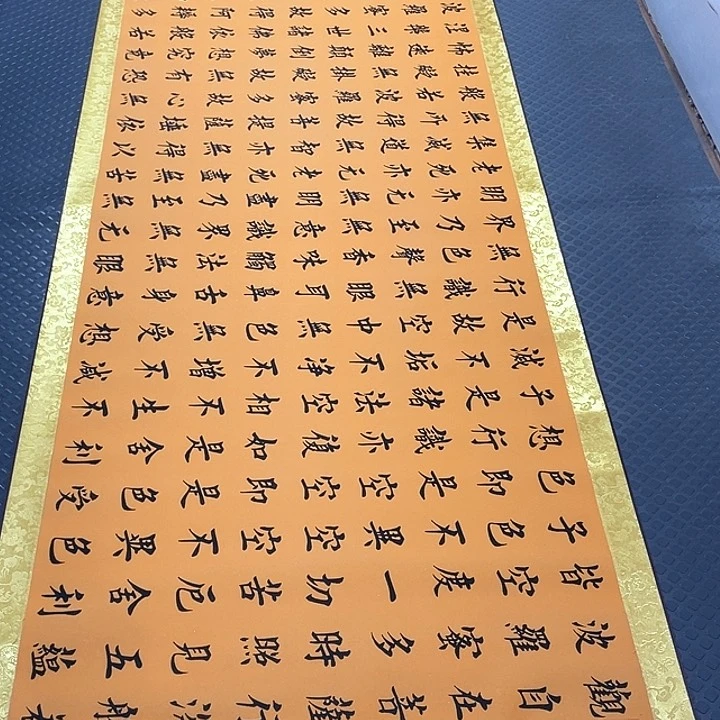 觀自在菩薩行深般若
波羅蜜多時照見五蘊
皆空度一切苦厄舍利
子色不異空空不異色
色即是空空即是色受
想行識亦復如是舍利
子是諸法空相不生不
滅不垢不净不增不減
是故空中無色無受想
行識無眼耳鼻舌身意
無色聲香味觸法無眼
界乃至無意識界無无
明亦无無明盡乃至無
老死亦无老死盡無苦
集滅道無智亦無得以
無所得故菩提薩埵依
般若波羅蜜多故心無
挂礙無掛礙故無有恐
怖遠離顛倒夢想究竟
涅槃三世諸佛依般若
波羅蜜多故得阿耨多